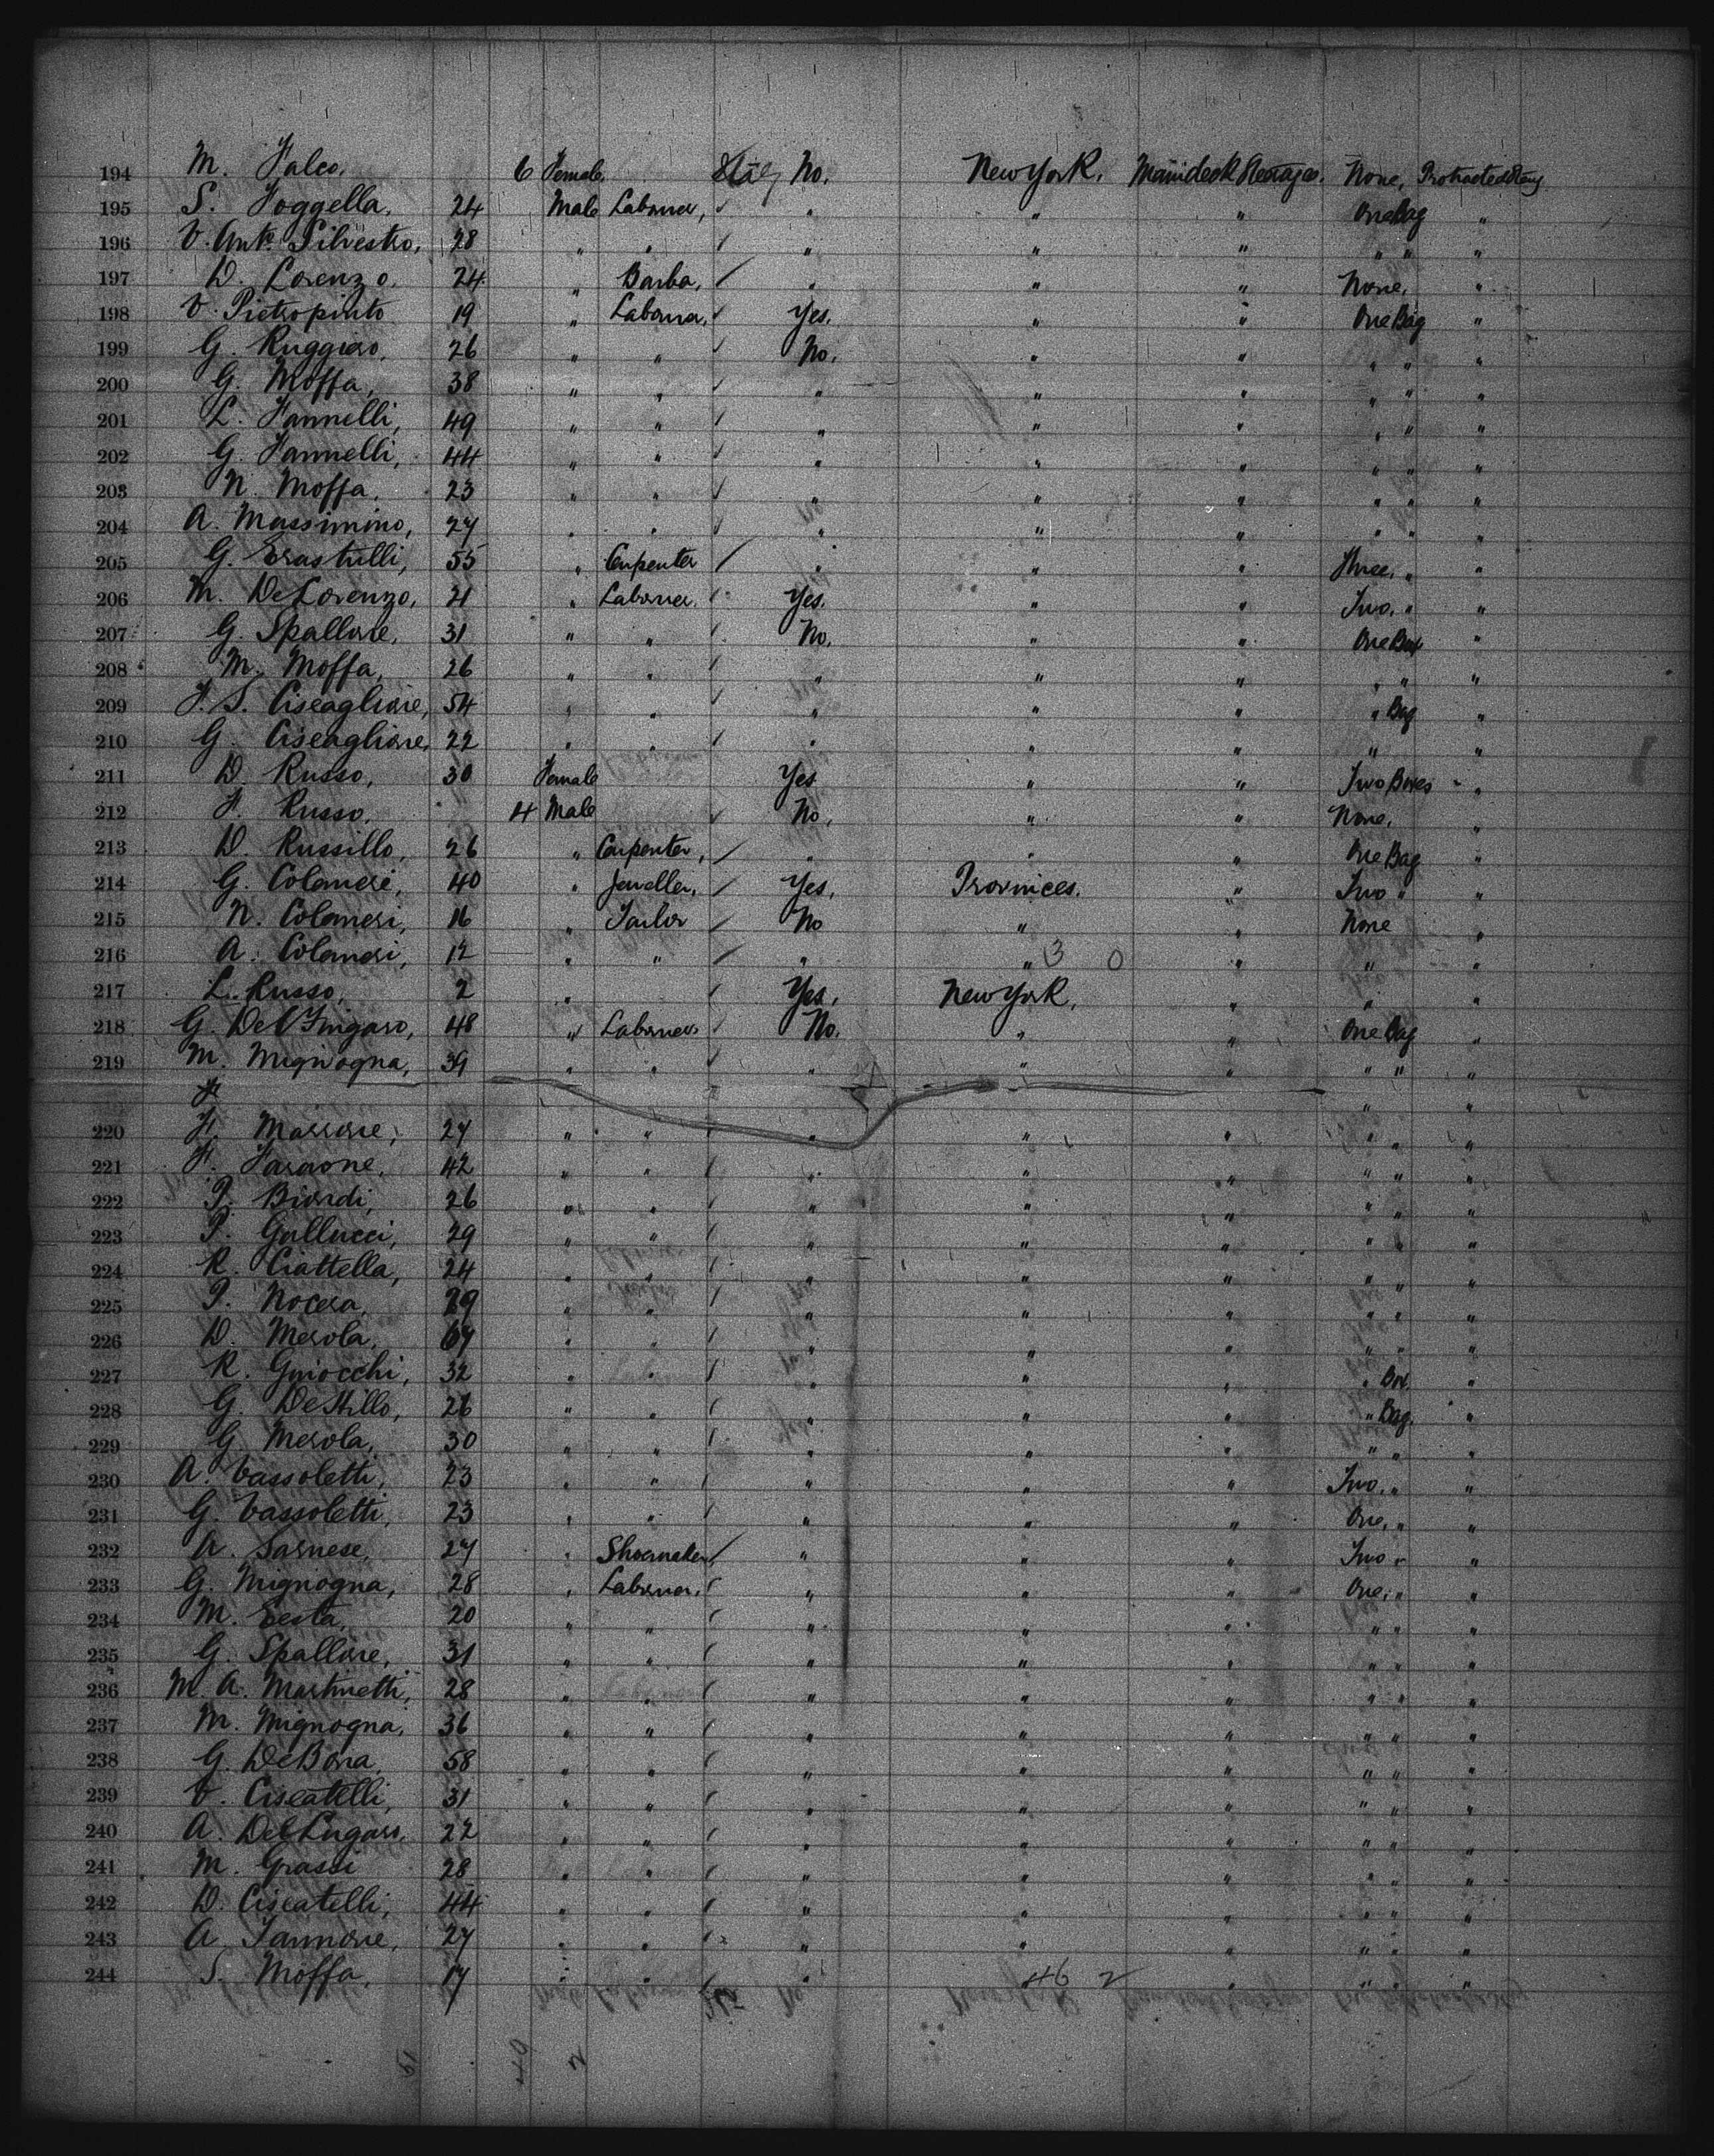 194 M. Falco, 6 Female. Italy No. New York. Maindeck Steerages. None, Protracted Stay
195 S. Foggella, 24 Male Laborer, " " " One Bag "
196 V. Anto Silvestro, 28 " " " " " " " "
197 D. Lorenzo, 24 " Barba, " " " None, "
198 V. Pietropinto 19 " Laborer, Yes. " " One Bag "
199 G. Ruggiero, 26 " " No. " " " " "
200 G. Moffa, 38 " " " " " " " "
201 L. Iannelli, 49 " " " " " " " "
202 G. Iannelli, 44 " " " " " " " "
203 N. Moffa, 23 " " " " " " " "
204 A. Massimino, 27 " " " " " " " "
205 G. Erastulli, 55 " Carpenter " " " Three, " "
206 M. DeLorenzo, 21 " Laborer. Yes. " " Two, " "
207 G. Spallone, 31 " " No. " " One Box "
208 M. Moffa, 26 " " " " " " " "
209 F. S. Ciscaglione, 54 " " " " " " Bag "
210 G. Ciscaglione, 22 " " " " " " "
211 D. Russo, 30 Female Yes " " Two Boxes "
212 F. Russo. 4 Male No, " " None, "
213 D. Russillo, 26 " Carpenter, " " " One Bag "
214 G. Colaneri, 40 " Jeweller, Yes, Provinces. " Two " "
215 N. Colaneri, 16 " Tailor No " " None "
216 A. Colaneri, 12 " " " " 3 0 " " "
217 L. Russo, 2 " Yes, New York, " " "
218 G. Del Zingaro, 48 " Laborer No. " " One Bag "
219 M. Mignogna, 39 " " " " " " " "
F " "
220 F. Marrone, 27 " " " " " " " "
221 F. Faraone, 42 " " " " " " " "
222 P. Biondi, 26 " " " " " " " "
223 P. Gallucci, 29 " " " " " " " "
224 R. Ciattella, 24 " " " " " " " "
225 P. Nocera, 29 " " " " " " " "
226 D. Merola, 67 " " " " " " " "
227 R. Gniocchi, 32 " " " " " " Box. "
228 G. DeStillo, 26 " " " " " " Bag. "
229 G. Merola, 30 " " " " " " " "
230 A. Vassoletti, 23 " " " " " Two, " "
231 G. Vassoletti, 23 " " " " " One, " "
232 A. Sarnese, 27 " Shoemaker " " " Two " "
233 G. Mignogna, 28 " Laborer, " " " One, " "
234 M. Testa, 20 " " " " " " " "
235 G. Spallone, 31 " " " " " " " "
236 M. A. Martinetti, 28 " " " " " " " "
237 M. Mignogna, 36 " " " " " " " "
238 G. DeBona, 58 " " " " " " " "
239 V. Ciscatelli, 31 " " " " " " " "
240 A. Del Zingaro, 22 " " " " " " " "
241 M. Grassi 28 " " " " " " " "
242 D. Ciscatelli, 44 " " " " " " " "
243 A. Iannone, 27 " " " " " " " "
244 S. Moffa, 17 " " " " 46 2 " " " "